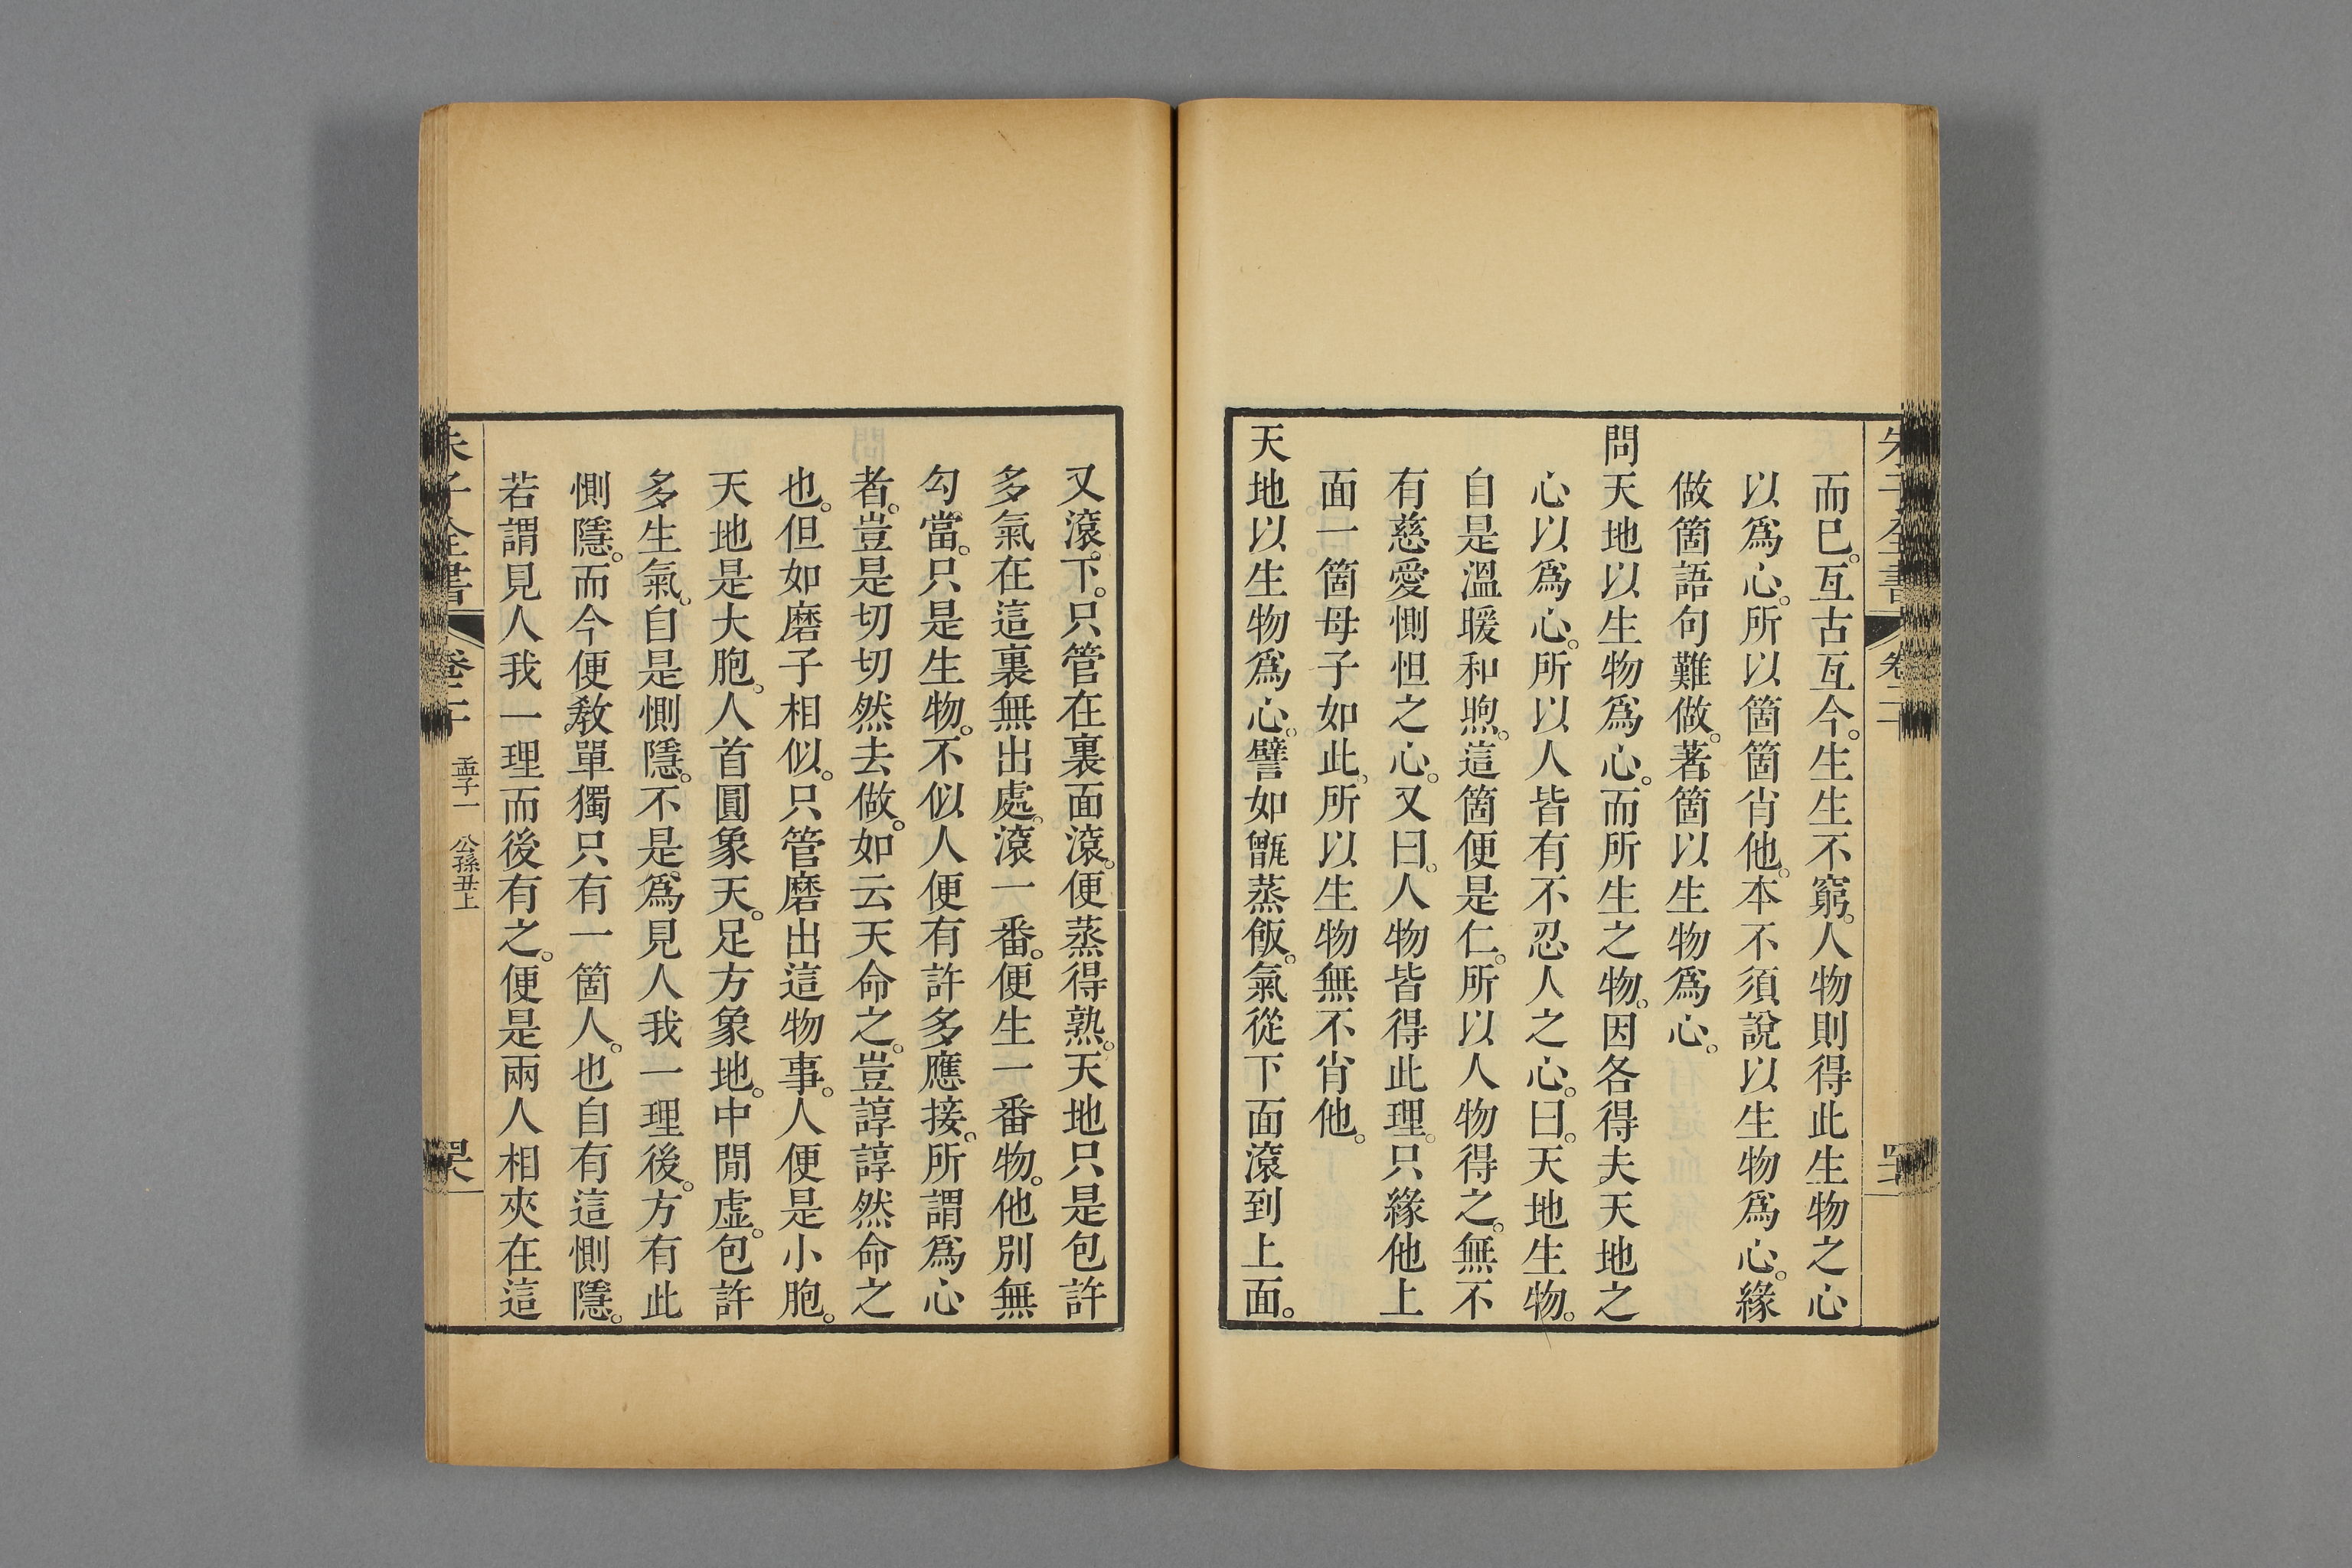 而已。亙古亙今。生生不窮。人物則得此生物之心
以爲心。所以箇箇肖他。本不須說以生物爲心。緣
做箇語句難做。著箇以生物爲心。
問天地以生物爲心。而所生之物。因各得夫天地之
心以爲心。所以人皆有不忍人之心。曰。天地生物。
自是溫暖和煦。這箇便是仁。所以人物得之。無不
有慈愛惻怛之心。又曰。人物皆得此理。只緣他上
面一箇母子如此。所以生物無不肖他。
天地以生物爲心。譬如甑蒸飯。氣從下面滾到上面。
又滾下。只管在裏面滾。便蒸得熟。天地只是包許
多氣在這裏無出處。滾一番。便生一番物。他別無
勾當。只是生物。不似人便有許多應接。所謂爲心
者。豈是切切然去做。如云天命之。豈諄諄然命之
也。但如磨子相似。只管磨出這物事。人便是小胞。
天地是大胞。人首圓象天。足方象地。中閒虛。包許
多生氣。自是惻隱。不是爲見人我一理後。方有此
惻隱。而今便教單獨只有一箇人。也自有這惻隱。
若謂見人我一理而後有之。便是兩人相夾在這
朱子全書 卷二十 孟子一 公孫丑上